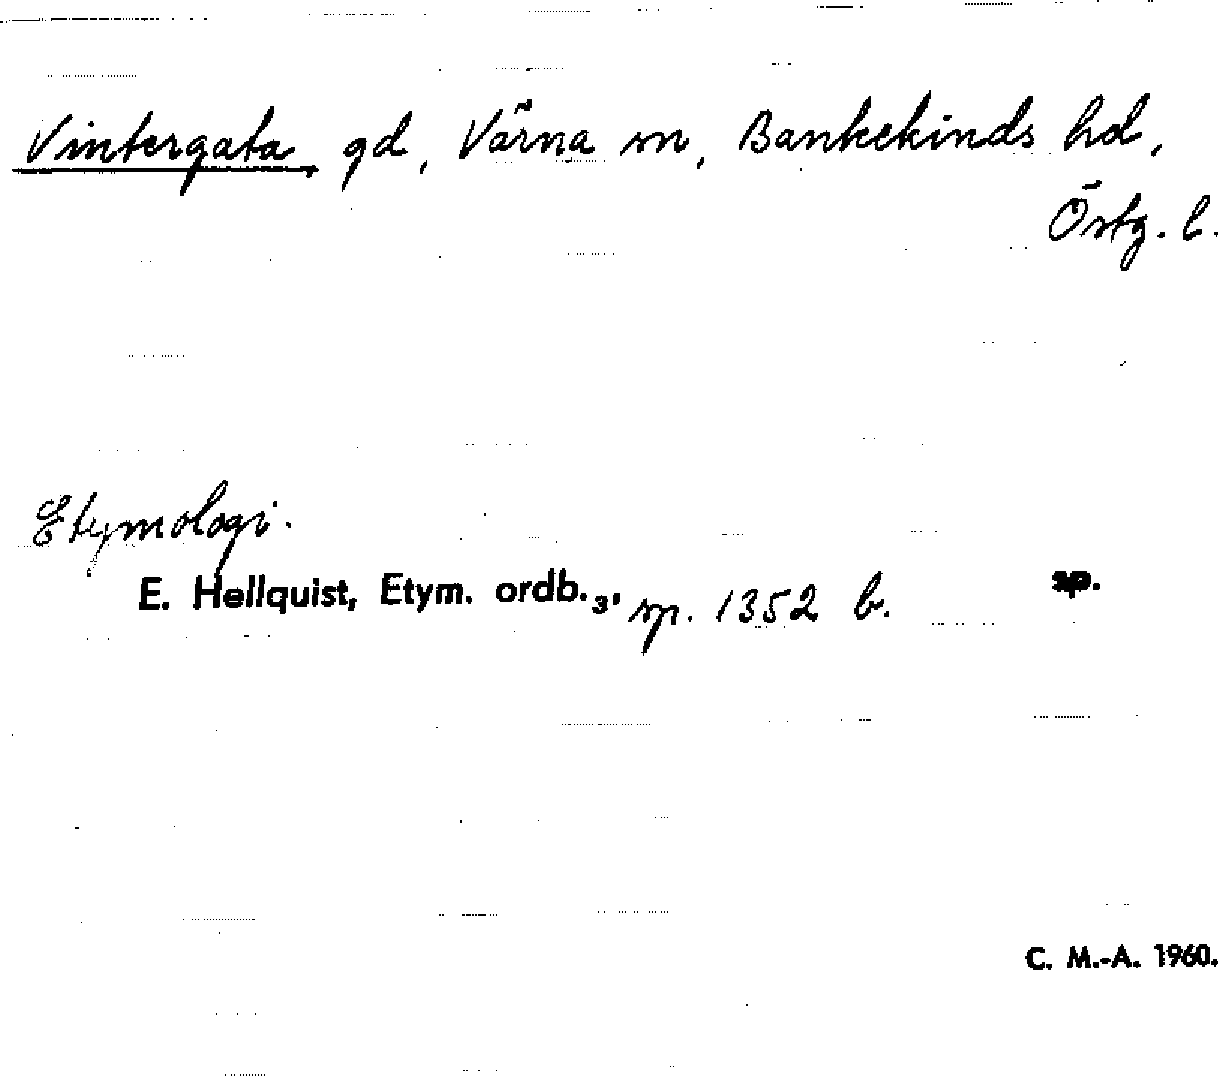 Vintergata gd, Värna sn, Bankekinds hd,
Östg. l.
Etymologi.
E. Hellquist, Etym. ordb.₃, sp. 1352 b. sp.
C. M.-A. 1960.